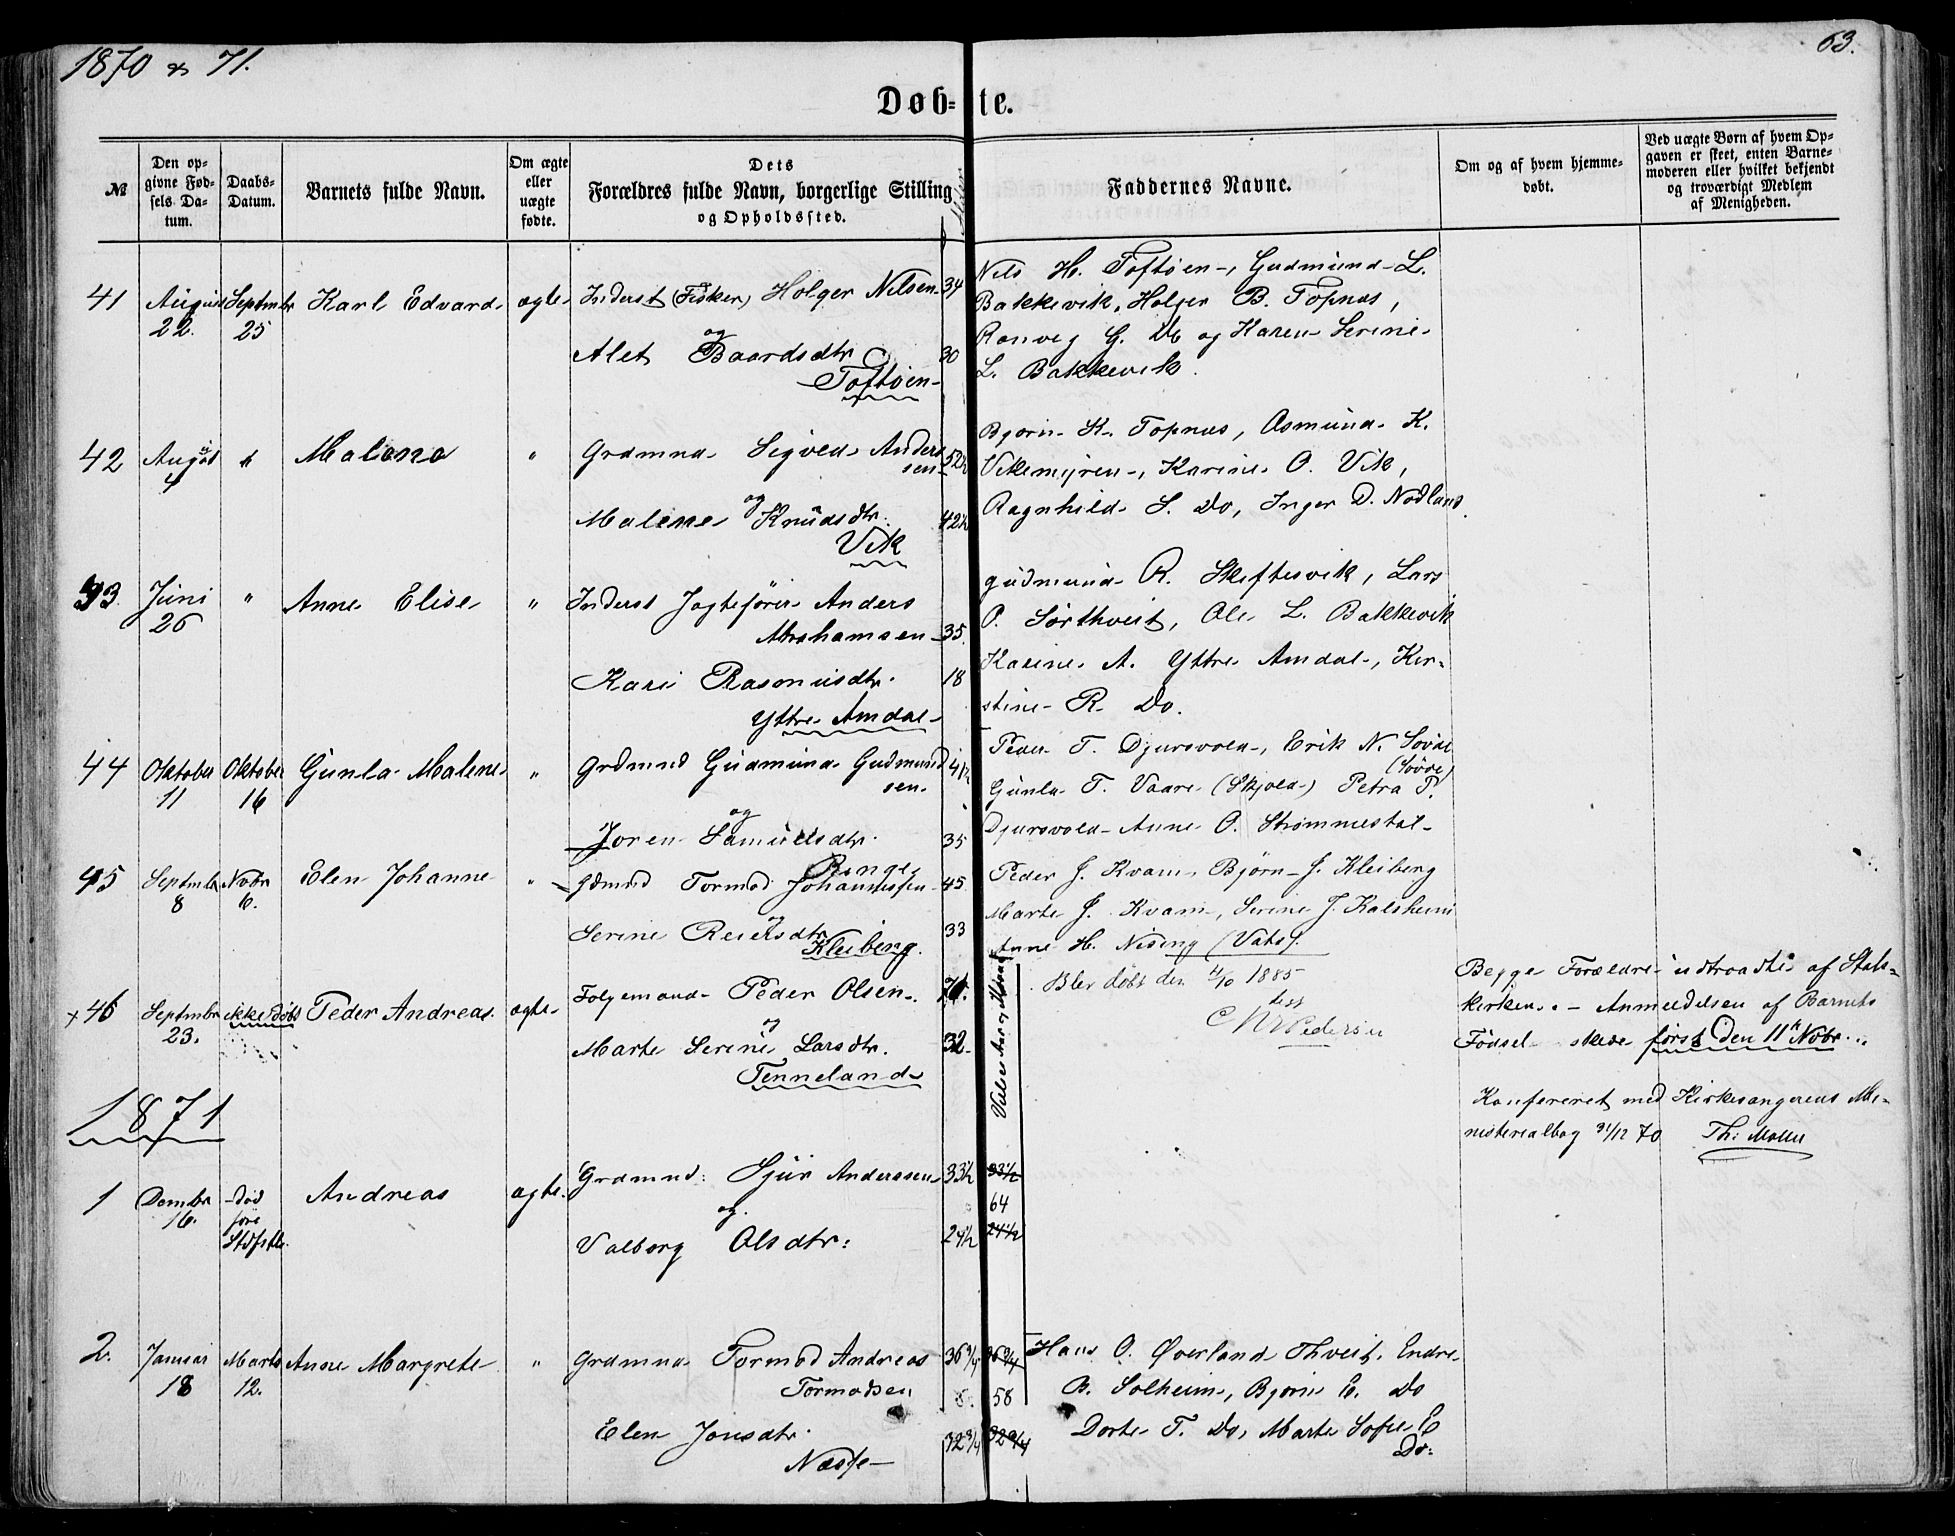 1870 & 71.
63.
Døb=te.
№
Den opgivne Fødsels Datum.
Daabs-Datum.
Barnets fulde Navn.
Om ægte eller uægte fødte.
Dets Forældres fulde Navn, borgerlige Stilling og Opholdssted.
Faddernes Navne.
Om og af hvem hjemmedøbt.
Ved uægte Børn af hvem Opgaven er skeet, enten Barnemoderen eller hvilket bekjendt og troværdigt Medlem af Menigheden.
41 August 22. Septmbr 25 Karl Edvard ægte Inderst (Fisker) Holger Nilsen 34
og
Alet Baardsdtr 30
Toftøen
Nils H. Toftøen, Gudmund L.
Bakkevik, Holger B. Topnes,
Ranveg G. Do og Karen Serine
L. Bakkevik.
42 August 4 " Malene " Grdmnd Sigved Andersen 52½
og
Malene Knudsdtr. 42½
Vik
Bjørn K. Topnes, Asmund K.
Vikemyren, Karine O. Vik,
Ragnhild S. Do, Inger D. Nodland.
43. Juni 26 " Anne Elise " Inderst Jagtefører Anders
Abrahamsen 35.
Kari Rasmusdtr. 18
Yttre Amdal
Gudmund R. Skeftesvik, Lars
O. Sørthveit, Ole L. Bakkevik
Karine A. Yttre Amdal, Kirstine R. Do.
44 Oktober 11 Oktober 16 Gunla Malene " Grdmnd Gudmund Gudmundsen. 41½
og
Joren Samuelsdtr. 35
Ringe
Peder T. Djursvold, Erik N. Søvde
(Søvde)
Gunla T. Vaare (Skjold) Petra P.
Djursvold Anne O. Strømmestøl
45 Septmbr 8 Novbr 6. Elen Johanne " Gdmnd Tormod Johannessen 45.
og
Serine Reiersdtr 33
Kleiberg.
Peder J. Kvam, Bjørn J. Kleiberg
Marte J. Kvam, Serine J. Kalsheim
Anne H. Nising (Vats).
x 46 Septmbr 23. ikke døbt Peder Andreas. ægte Folgemand Peder Olsen. 71.
og
Marte Serine Larsdtr. 32.
Tenneland
Blev døbt den 4/10 1885
C M Pedersen
Begge Forældre udtraadte af Statskirken. – Anmeldelsen af Barnets
Fødsel skede først Den 11te Novbr.
Konfereret med Kirkesangerens Ministerialbog 31/12 70 Th: Møller
1871
1 Dcmbr 16. død før Stdfstlse. Andreas ægte. Grdmnd: Sjur Anderssen 33½ 33½
og. 64
Valborg Olsdtr: 24½ 24½
2. Januar 18 Marts 12. Anne Margrete " Grdmnd Tormod Andreas 36¾ 36¾
Tormodsen 58
Elen Jonsdtr. 32¾ 32¾
Næsse
Hans O. Øverland Thveit, Endre
B. Solheim, Bjørn E. Do
Dorte T. Do, Marte Sofie E
Do.